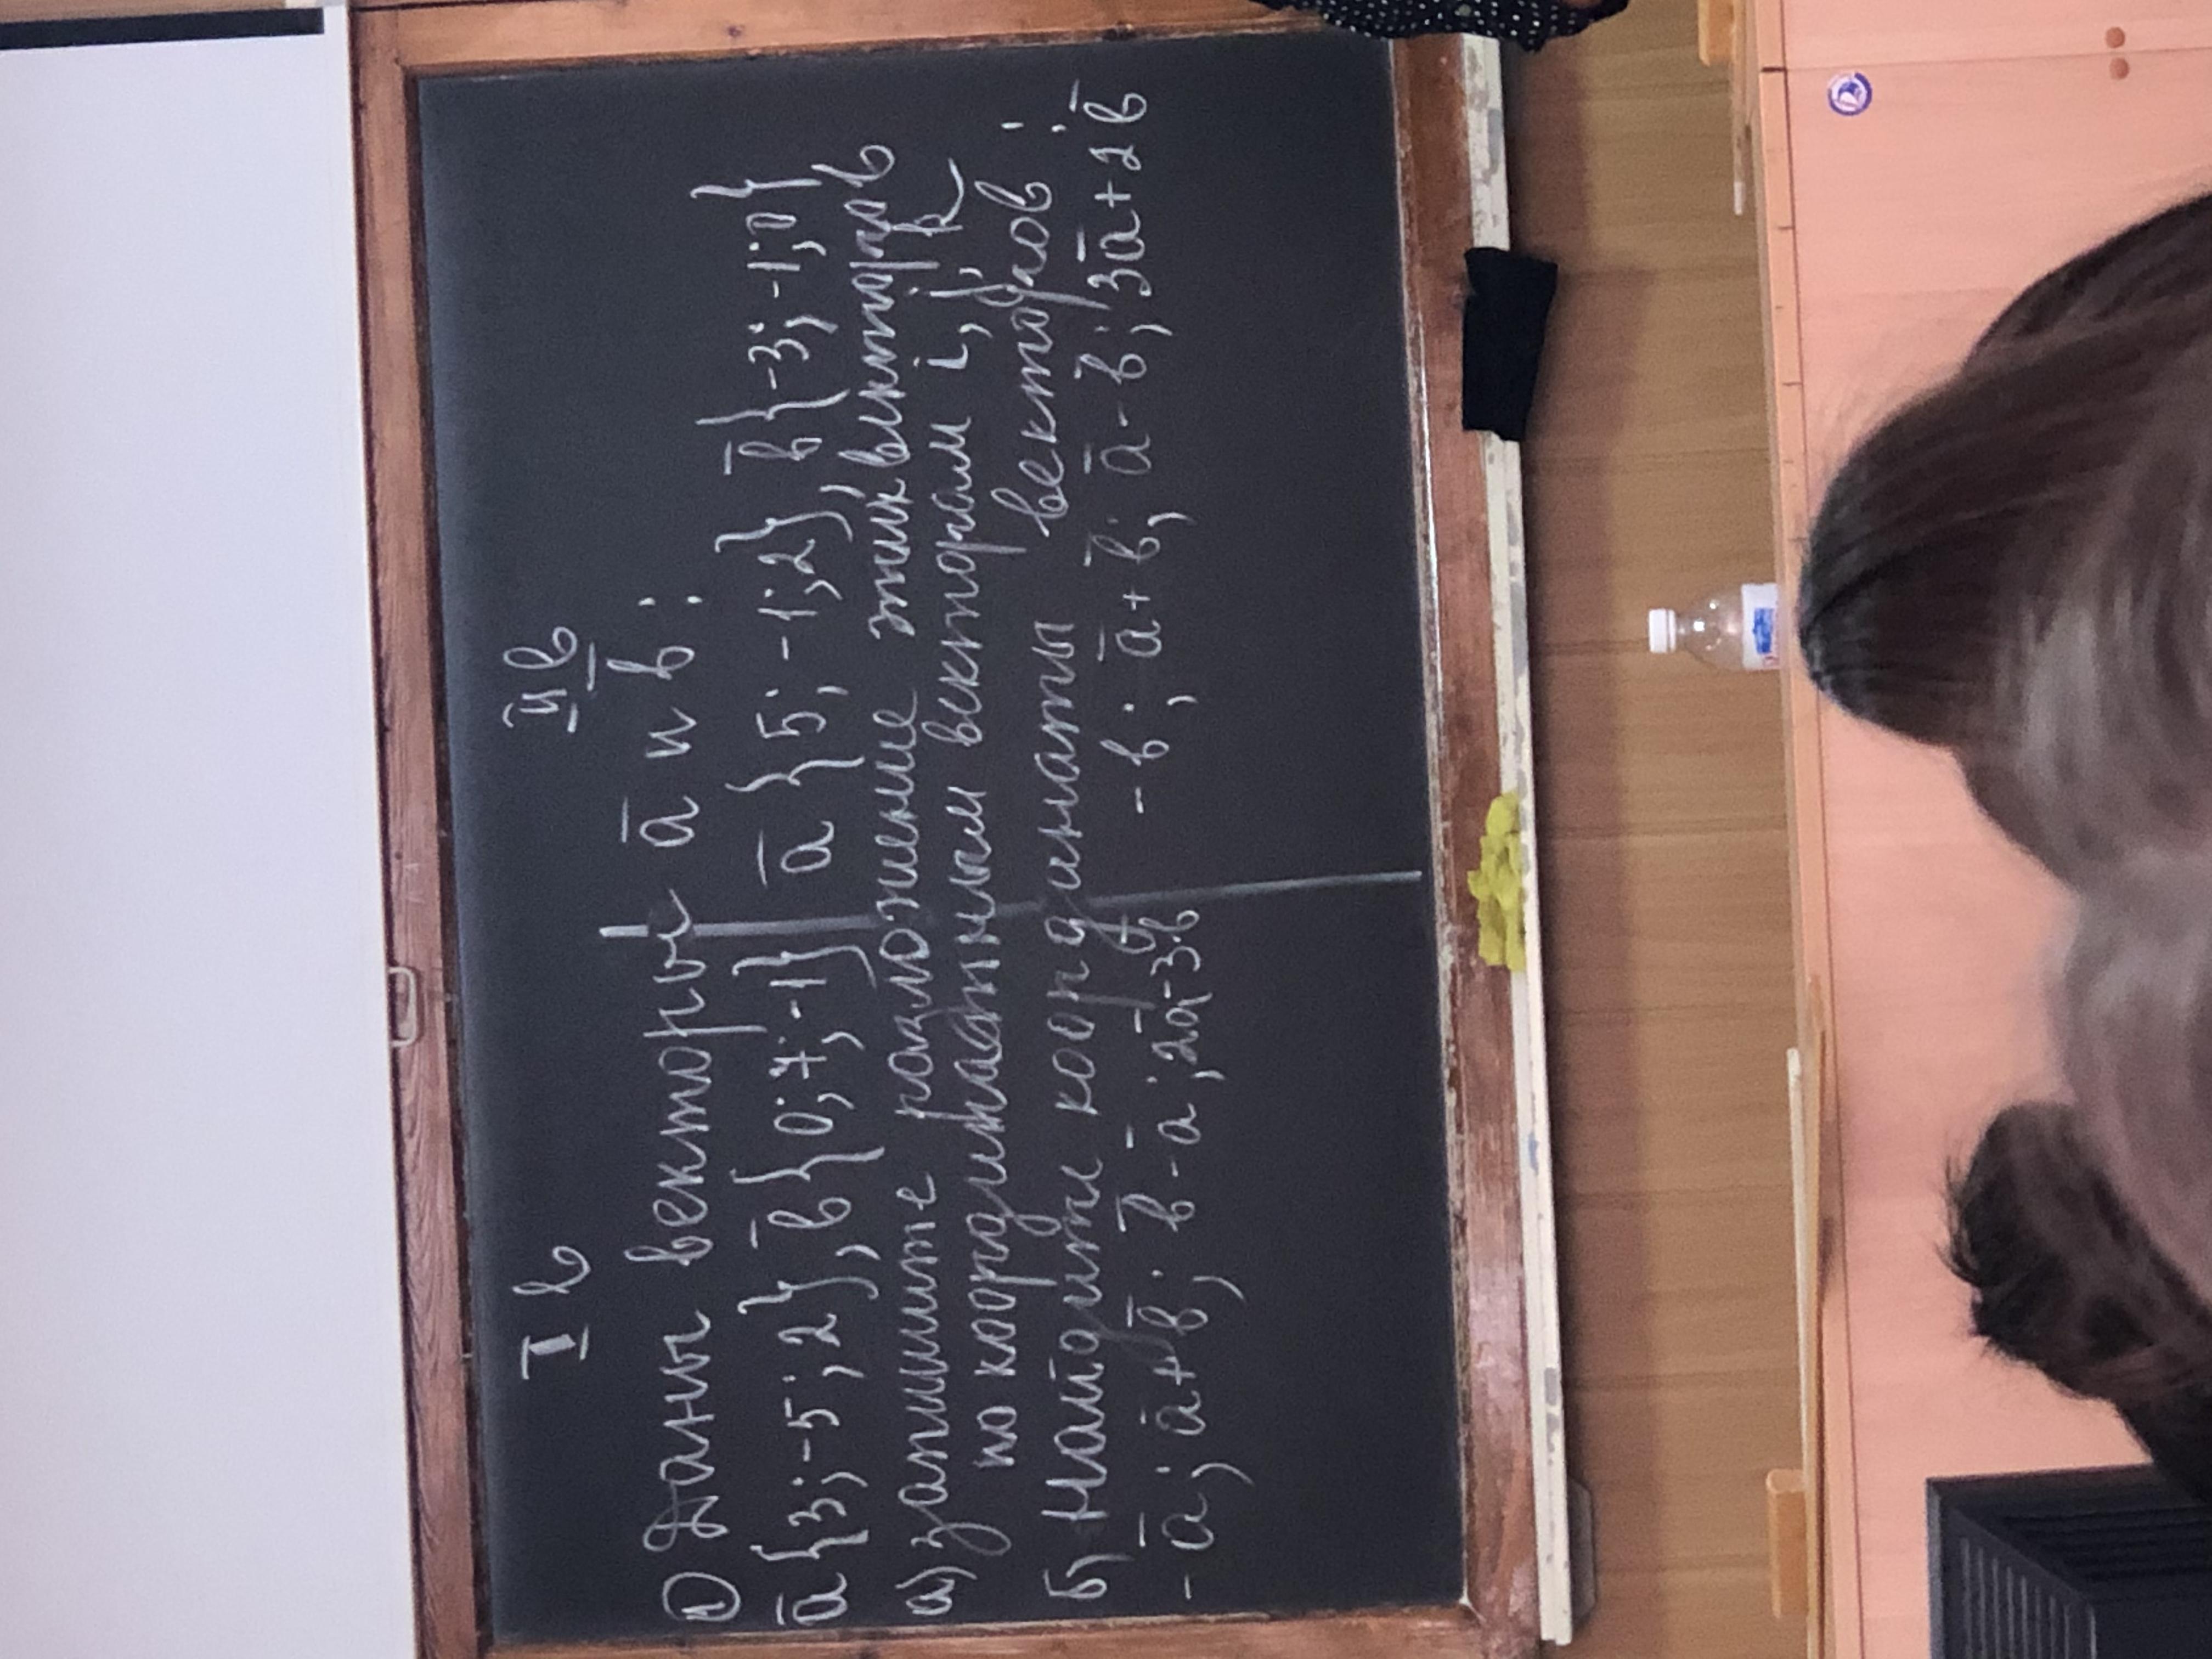 I в II в
① Даны векторы a̅ и b̅:
a̅ {3; -5; 2}, b̅ {0; 7; -1} a̅ {5; -1; 2}, b̅ {-3; -1; 0}
а) запишите разложение этих векторов
по координатным векторам i, j, k
б) Найдите координаты векторов:
-a̅; a̅+b̅; b̅-a̅; 2a̅-3b̅ -b̅; a̅+b̅; a̅-b̅; 3a̅+2b̅